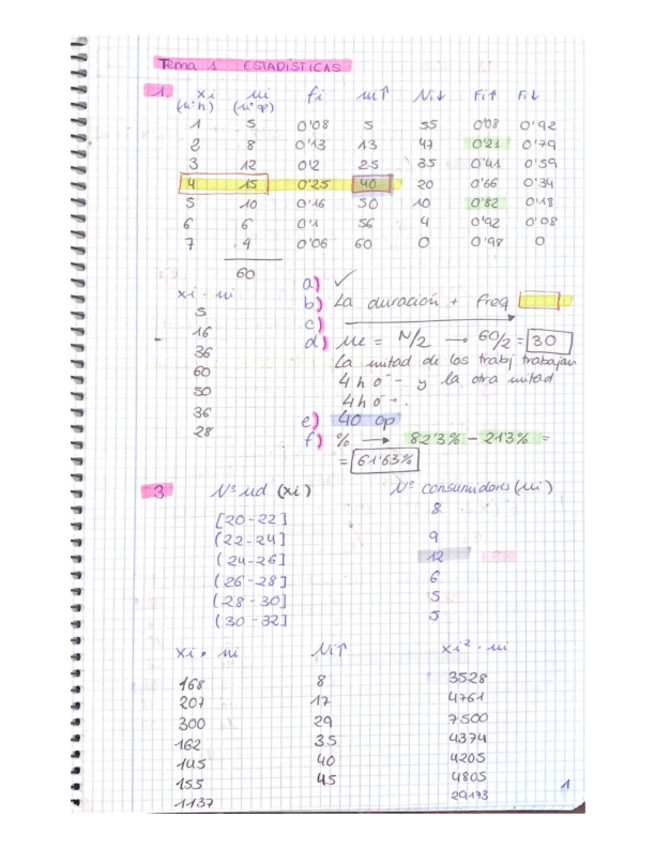 Tema 1 ESTADÍSTICAS
1. xi ni fi ni↑ Ni↓ Fi↑ Fi↓
(nºh) (nº op)
1 5 0'08 5 55 0'08 0'92
2 8 0'13 13 47 0'21 0'79
3 12 0'2 25 35 0'41 0'59
4 15 0'25 40 20 0'66 0'34
5 10 0'16 50 10 0'82 0'18
6 6 0'1 56 4 0'92 0'08
7 4 0'06 60 0 0'98 0
60
xi · ni
5
16
36
60
50
36
28
a) ✓
b) La duración + freq
c)
d) Me = N/2 → 60/2 = 30
La mitad de los trabj trabajan
4 h ó - y la otra mitad
4 h ó +.
e) 40 op
f) % → 82'3% - 21'3% =
= 61'63%
3 Nº ud (xi) Nº consumidores (ni)
[20-22] 8
(22-24] 9
(24-26] 12
(26-28] 6
(28-30] 5
(30-32] 5
xi · ni Ni↑ xi² · ni
168 8 3528
207 17 4761
300 29 7500
162 35 4374
145 40 4205
155 45 4805
1137 29173
1